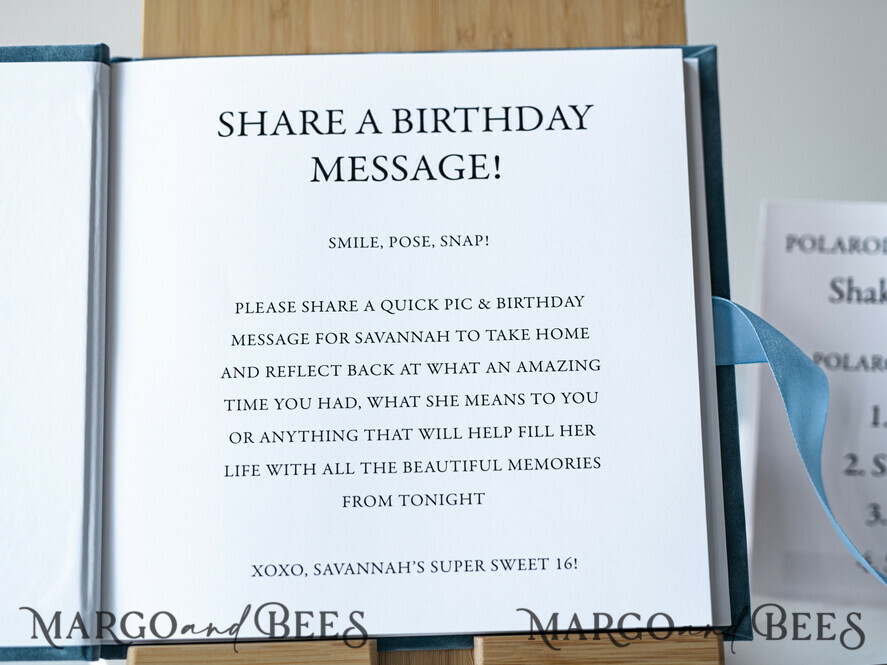 SHARE A BIRTHDAY
MESSAGE!
SMILE, POSE, SNAP!
PLEASE SHARE A QUICK PIC & BIRTHDAY
MESSAGE FOR SAVANNAH TO TAKE HOME
AND REFLECT BACK AT WHAT AN AMAZING
TIME YOU HAD, WHAT SHE MEANS TO YOU
OR ANYTHING THAT WILL HELP FILL HER
LIFE WITH ALL THE BEAUTIFUL MEMORIES
FROM TONIGHT
XOXO, SAVANNAH'S SUPER SWEET 16!
1.
2. S
3.
MARGO and BEES
MARGO and BEES